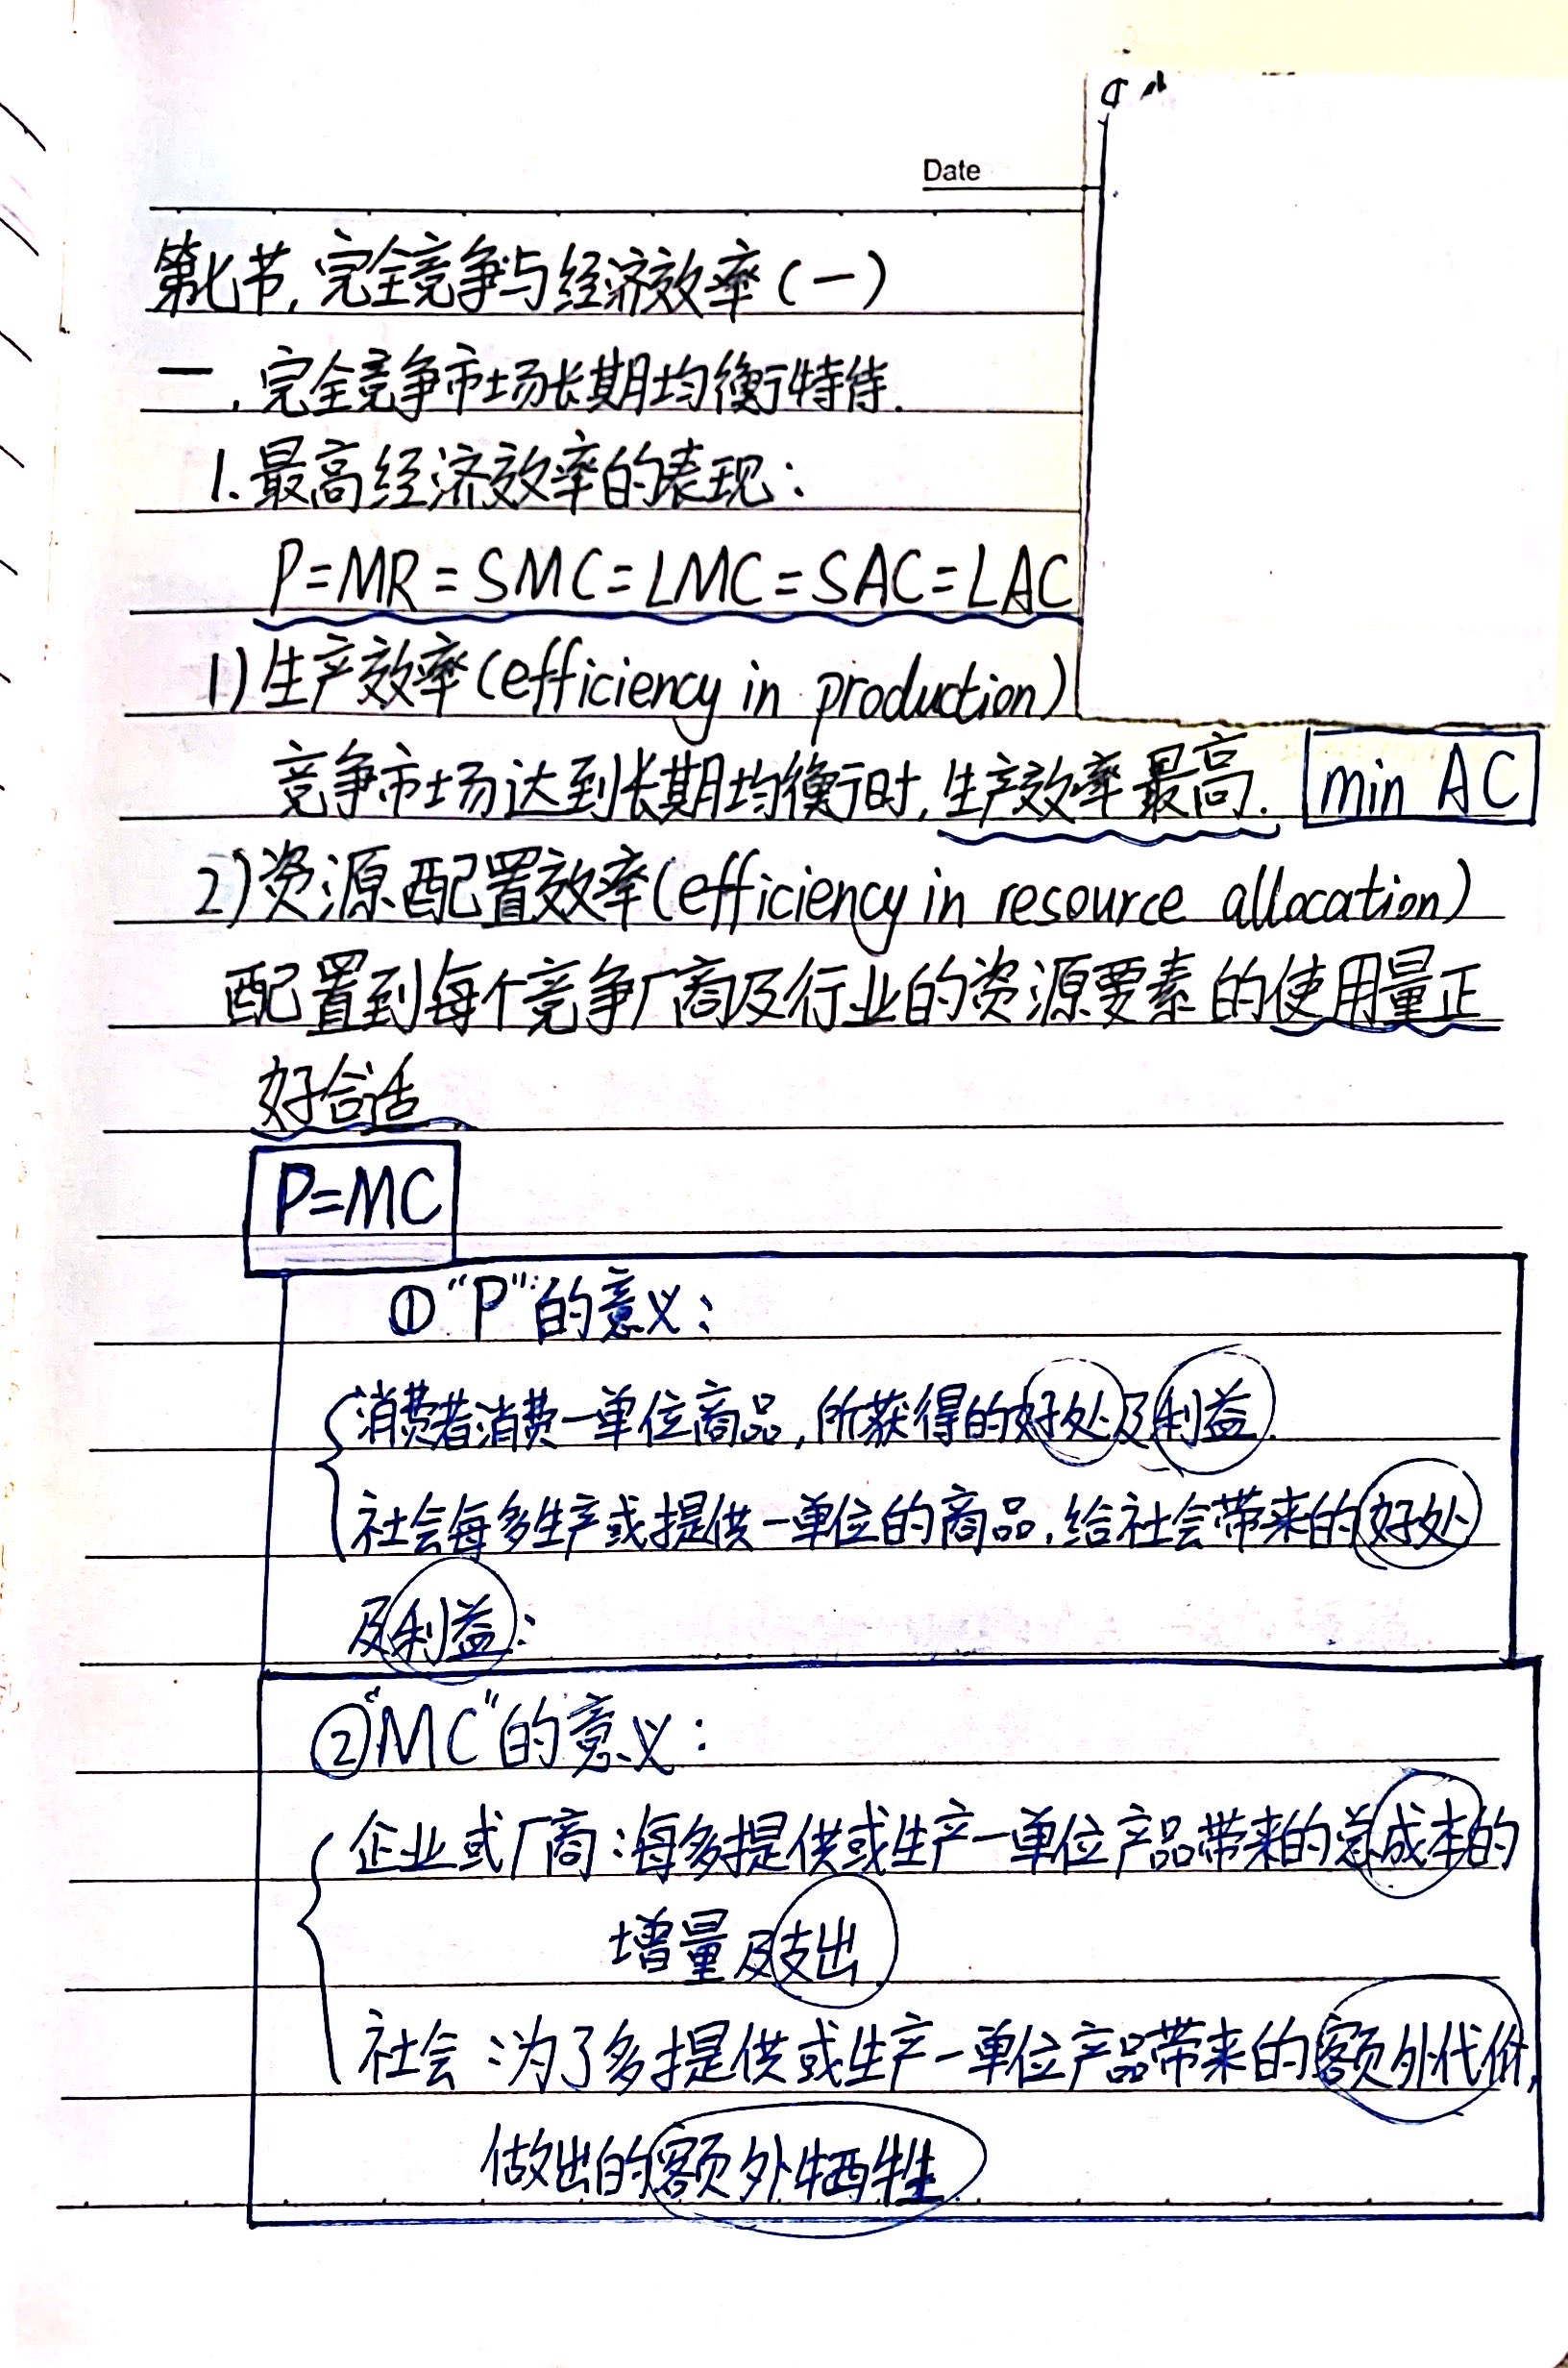 Date
第七节,完全竞争与经济效率(一)
一,完全竞争市场长期均衡特待.
1.最高经济效率的表现:
P=MR=SMC=LMC=SAC=LAC
1)生产效率(efficiency in production)
竞争市场达到长期均衡时,生产效率最高. min AC
2)资源配置效率(efficiency in resource allocation)
配置到每个竞争厂商及行业的资源要素的使用量正
好合适
P=MC
①"P"的意义:
消费者消费一单位商品,所获得的好处及利益.
社会每多生产或提供一单位的商品,给社会带来的好处
及利益:
②"MC"的意义:
企业或厂商:每多提供或生产一单位产品带来的总成本的
增量及支出
社会:为了多提供或生产一单位产品带来的额外代价,
做出的额外牺牲.